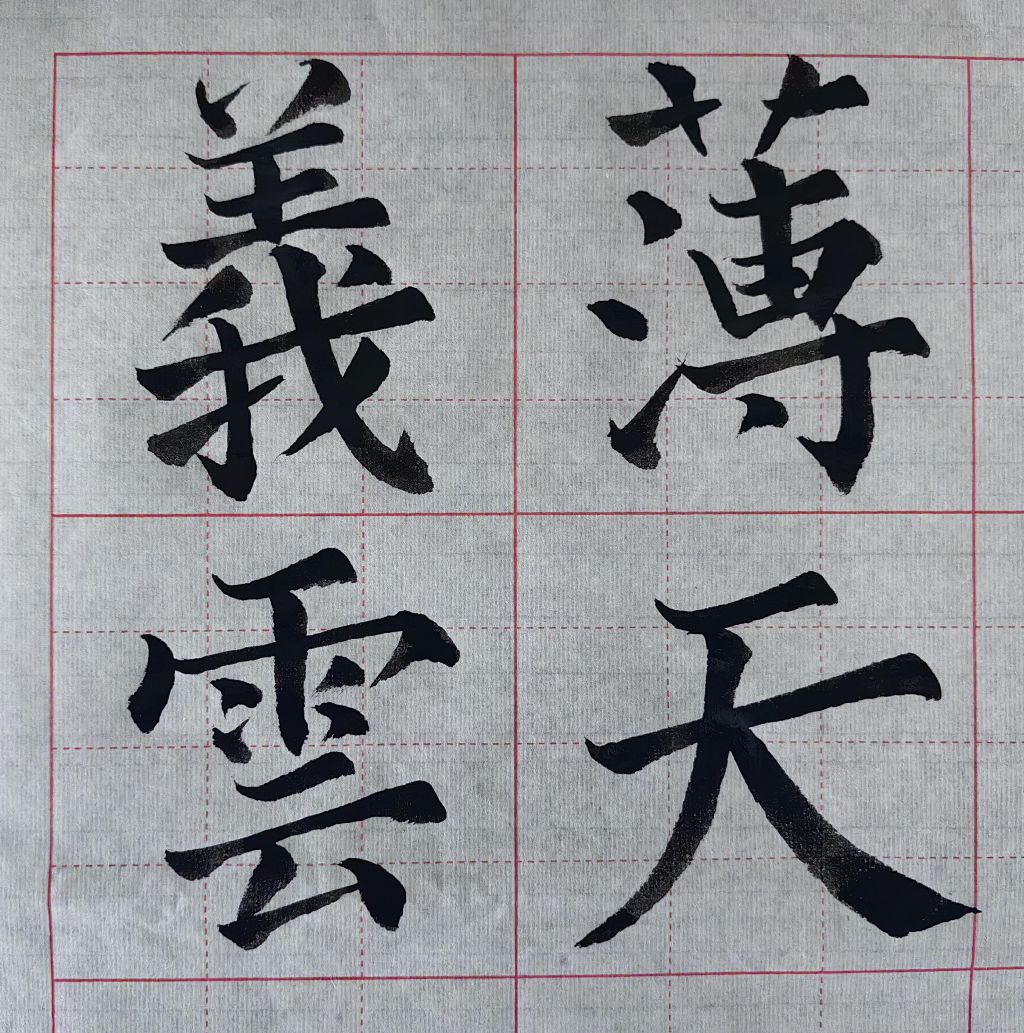 義薄
雲天